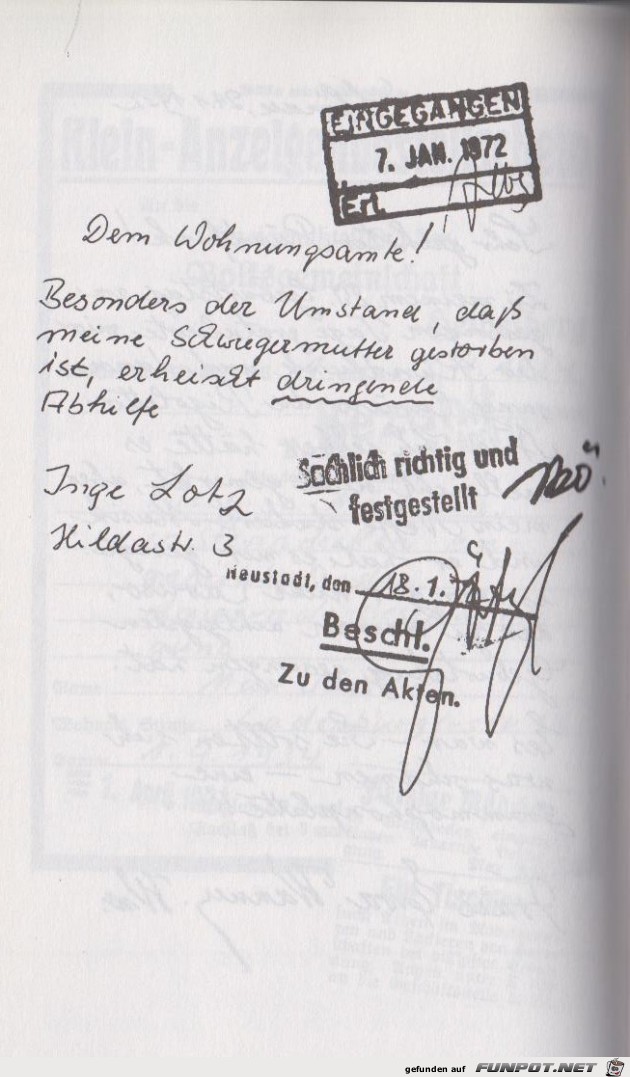 EINGEGANGEN
7. JAN. 1972
Erl.
Dem Wohnungsamte!
Besonders der Umstand, daß
meine Schwiegermutter gestorben
ist, erheischt dringende
Abhilfe
Inge Lotz
Hildastr. 3
Sachlich richtig und
festgestellt
Neustadt, den 18.1.
Beschl.
Zu den Akten.
gefunden auf FUNPOT.NET